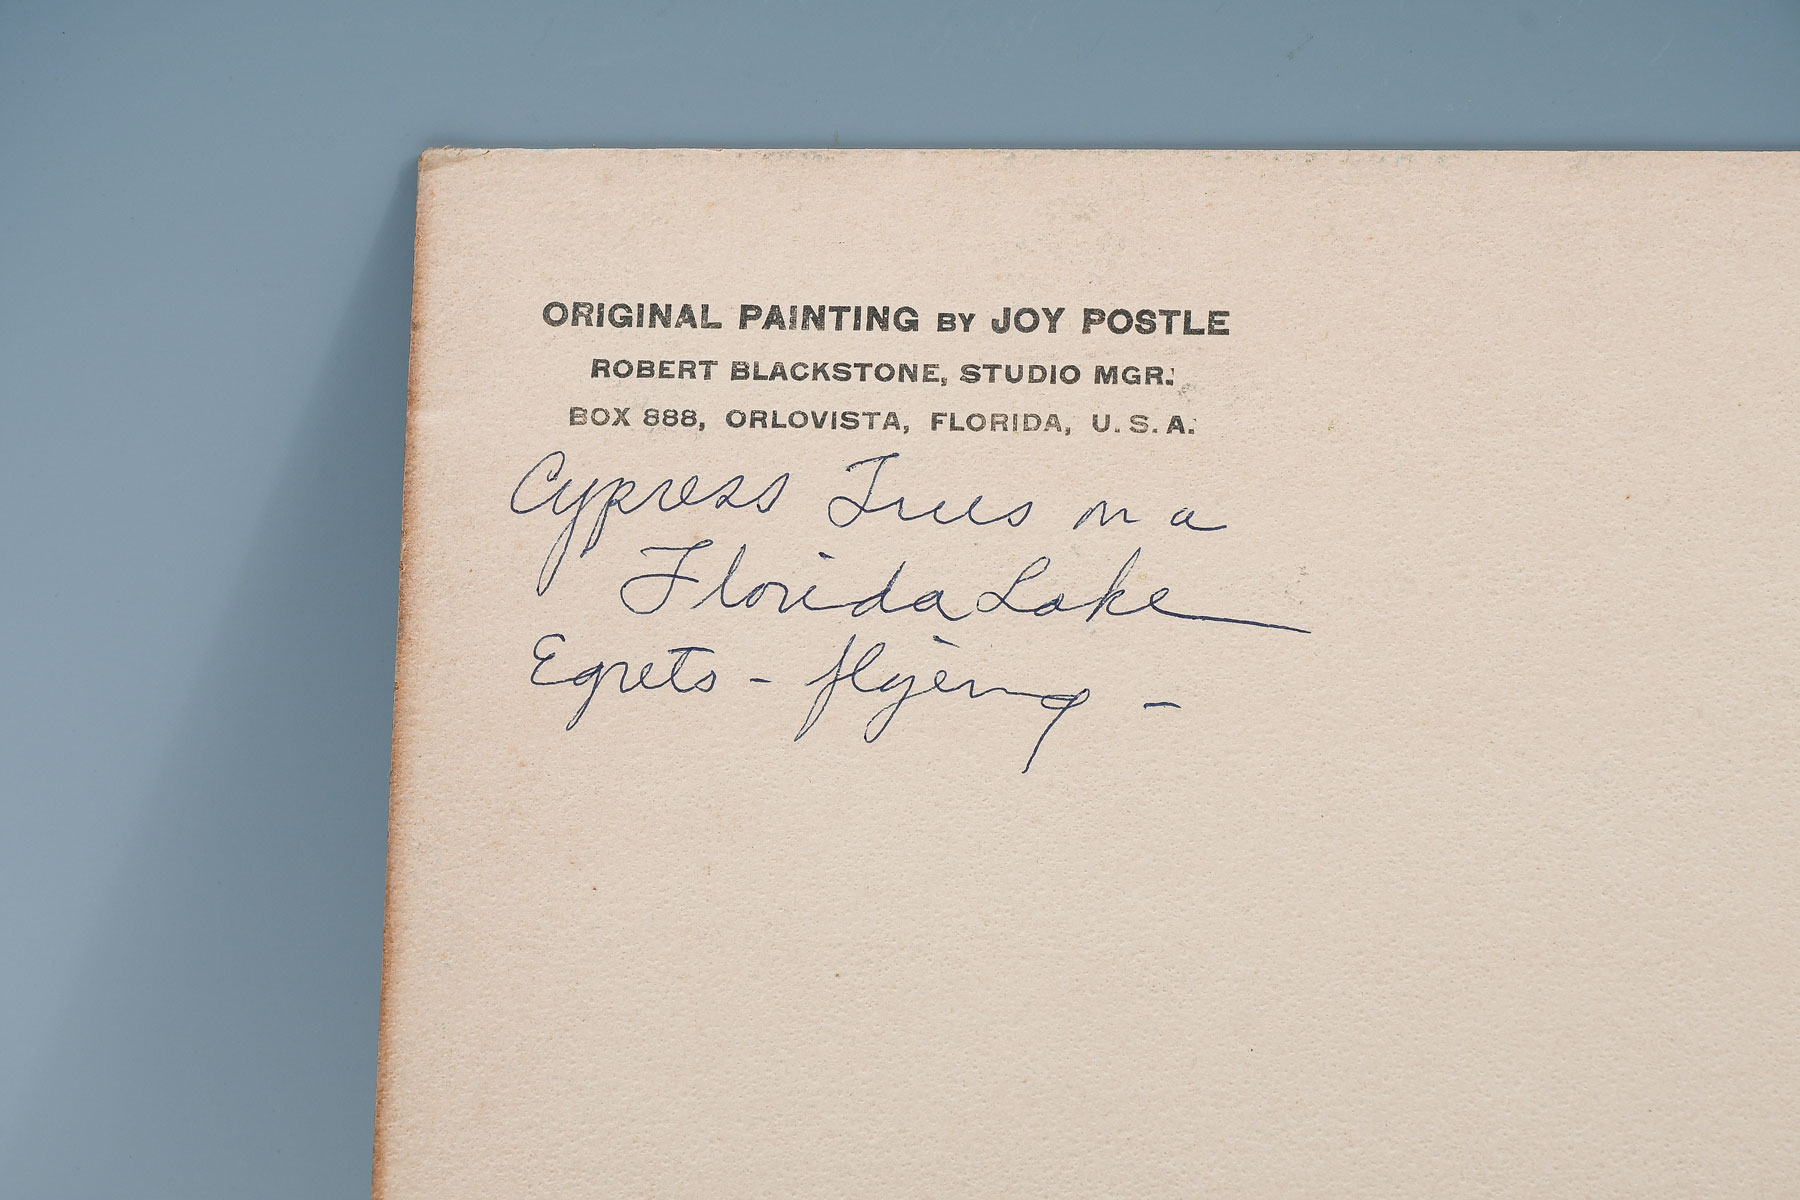 ORIGINAL PAINTING BY JOY POSTLE
ROBERT BLACKSTONE, STUDIO MGR.
BOX 888, ORLOVISTA, FLORIDA, U. S. A.
Cypress Trees on a
Florida Lake
Egrets - flying -